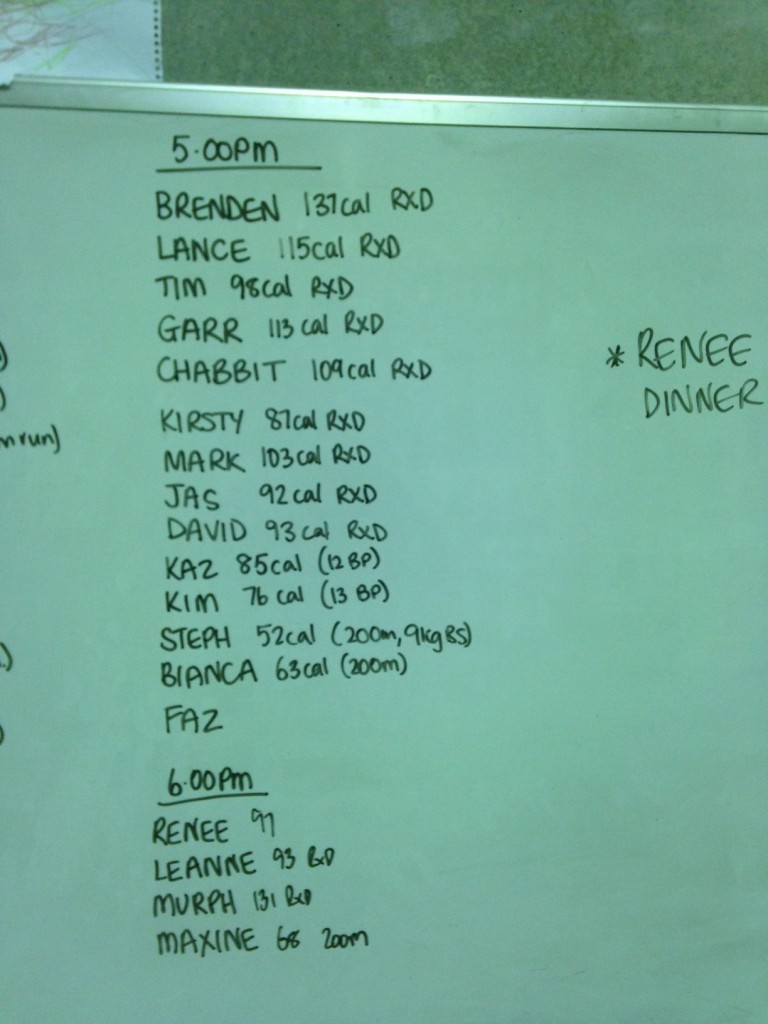 5.00pm
BRENDEN 137cal RXD
LANCE 115cal RXD
TIM 98cal RXD
GARR 113cal RXD
CHABBIT 109cal RXD
KIRSTY 87cal RXD
MARK 103cal RXD
JAS 92cal RXD
DAVID 93cal RXD
KAZ 85cal (12 BP)
KIM 76cal (13 BP)
STEPH 52cal (200m, 9kg BS)
BIANCA 63cal (200m)
FAZ
6.00pm
RENEE 97
LEANNE 93 RXD
MURPH 131 RXD
MAXINE 68 200m
* RENEE
DINNER
run)